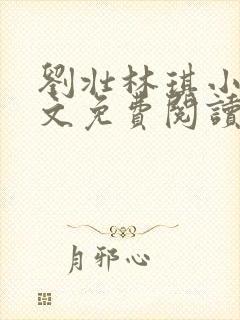 劉壯林琪小
文免費閱讀
月邪心